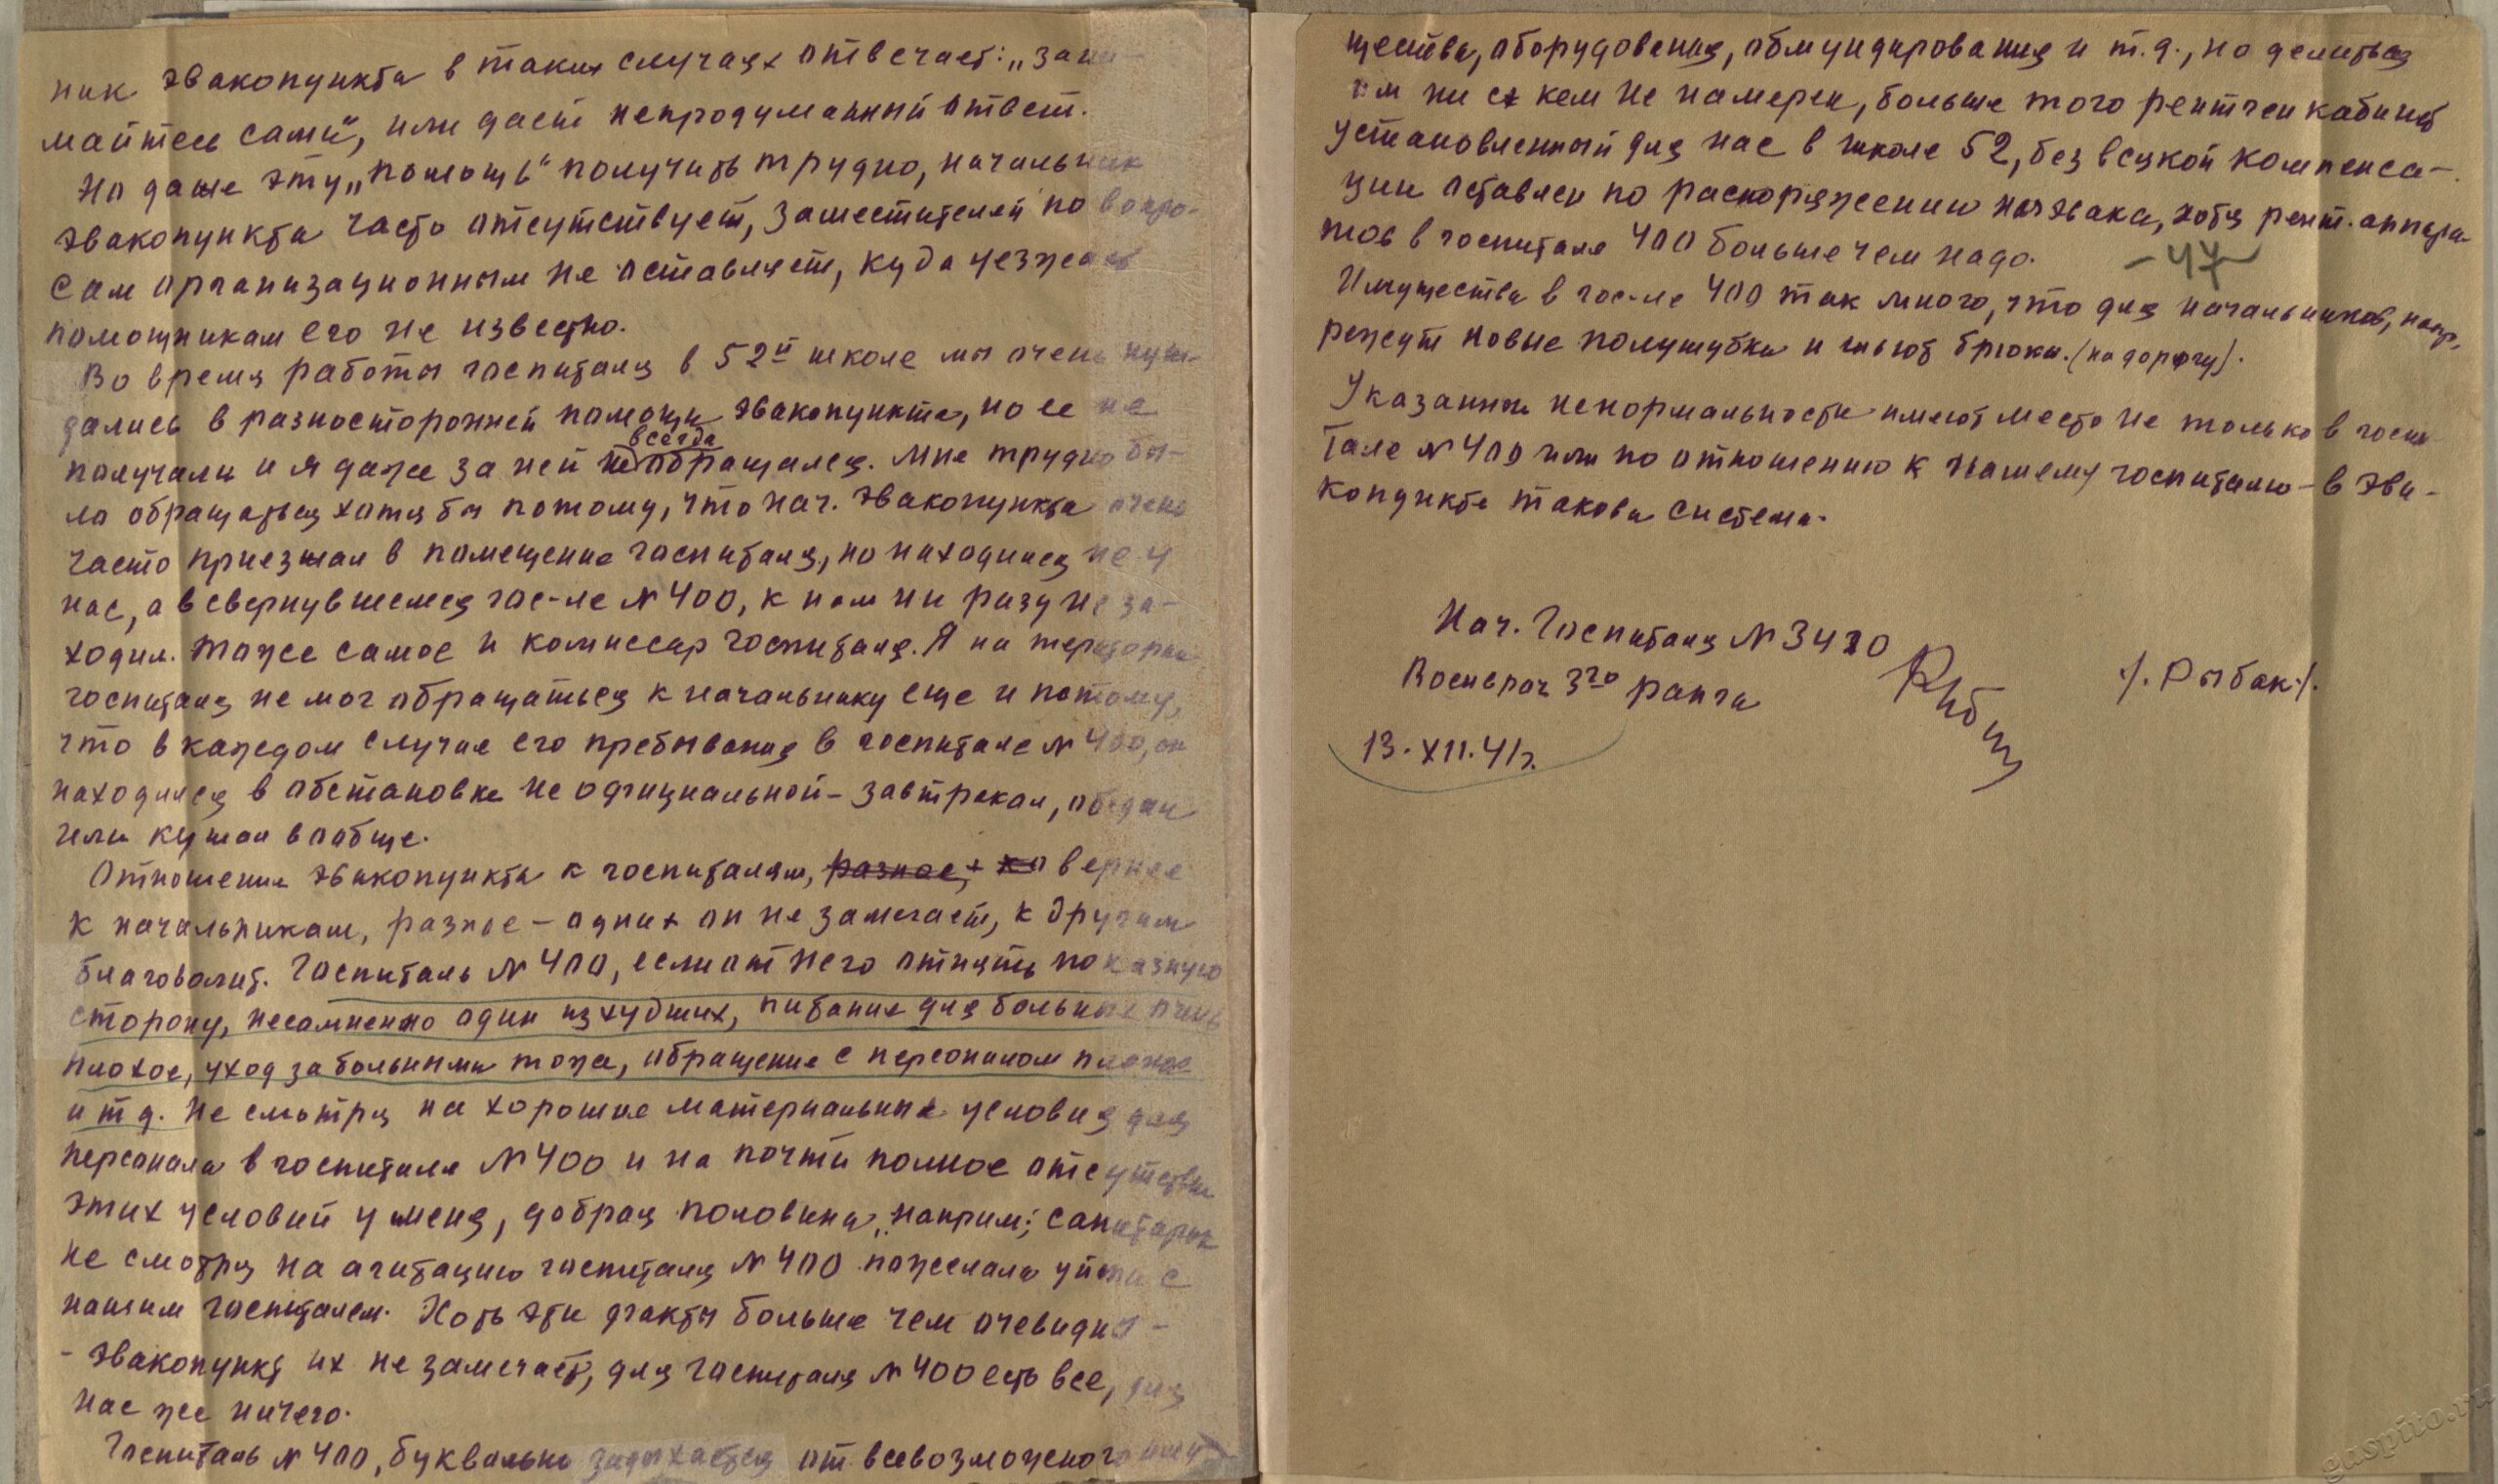 ник эвакопункта в таких случаях отвечает: „зани-
майтесь сами", или даст непродуманный ответ.
Но даже эту „помощь" получить трудно, начальник
эвакопункта часто отсутствует, заместителей по вопро-
сам организационным не оставляет, куда уезжает
помощникам его не известно.
Во время работы госпиталя в 52й школе мы очень нуж-
дались в разносторонней помощи эвакопункта, но ее не
получали и я даже за ней не всегда обращался. Мне трудно бы-
ло обращаться хотя бы потому, что нач. эвакопункта очень
часто приезжал в помещение госпиталя, но находился не у
нас, а в свернувшемся гос-ле № 400, к нам ни разу не за-
ходил. Тоже самое и комиссар госпиталя. Я на территории
госпиталя не мог обращаться к начальнику еще и потому,
что в каждом случае его пребывания в госпитале № 400, он
находился в обстановке не официальной – завтракал, обедал
или кушал вообще.
Отношения эвакопункта к госпиталям, разное, вернее
к начальникам, разное – одних он не замечает, к другим
благоволит. Госпиталь № 400, если от него отнять показную
сторону, несомненно один из худших, питание для больных очень
плохое, уход за больными тоже, обращение с персоналом плохое
и т д. Не смотря на хорошие материальные условия для
персонала в госпитале № 400 и на почти полное отсутствие
этих условий у меня, добрая половина, наприм; санитарок
не смотря на агитацию госпиталя № 400 пожелала уйти с
нашим госпиталем. Хоть эти факты больше чем очевидны –
- эвакопункт их не замечает, для госпиталя № 400 есть все, для
нас же ничего.
Госпиталь № 400, буквально задыхается от всевозможного иму-
щества, оборудования, обмундирования и т.д., но делиться
им ни с кем не намерен, больше того рентген кабинет
установленный для нас в школе 52, без всякой компенса-
ции оставлен по распоряжению начэвака, хотя рент. аппара-
тов в госпитале 400 больше чем надо.
-47-
Имущества в гос-ле 400 так много, что для начальников, напр,
режут новые полушубки и шьют брюки. (на дорогу).
Указанные ненормальности имеют место не только в госпи-
тале № 400 или по отношению к нашему госпиталю – в эва-
копункте такова система.
Нач. Госпиталя № 3420
Военврач 3го ранга
/. Рыбак./.
13.XII.41г.
gaspito.ru